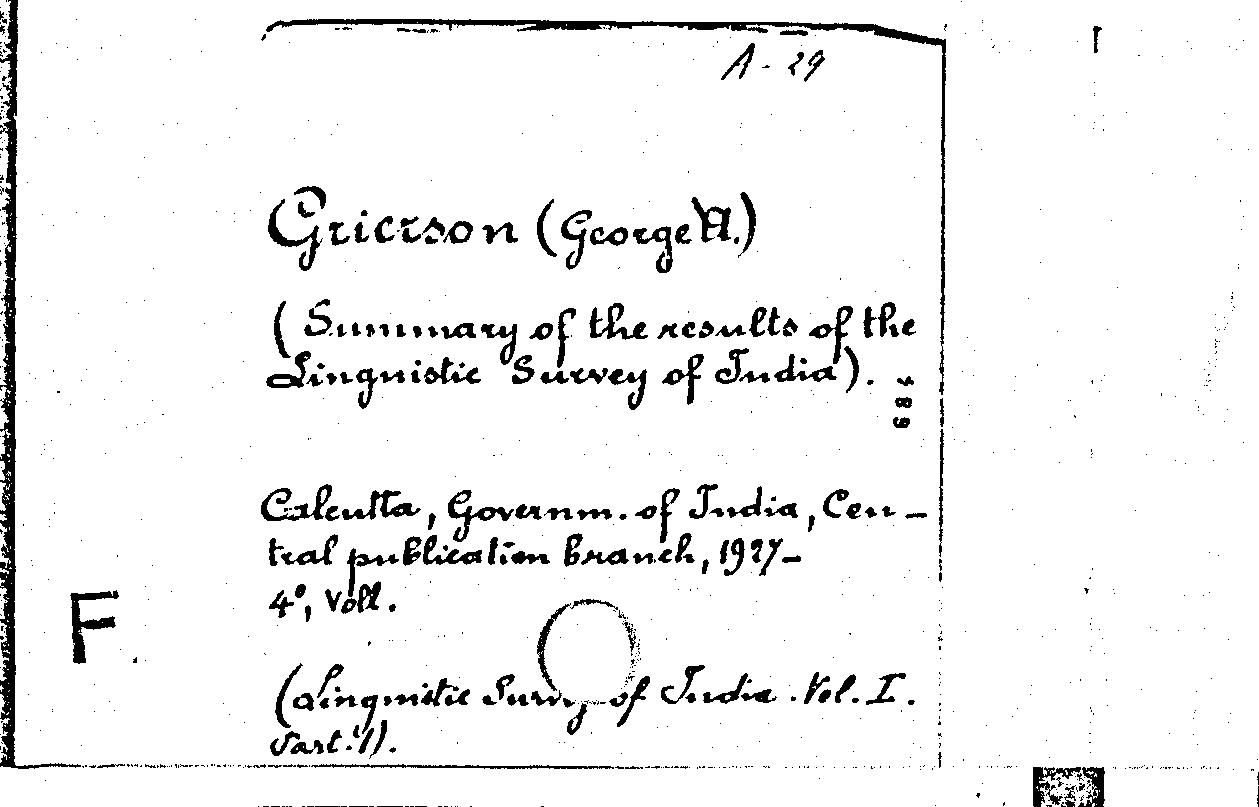 A - 29
Grierson (George A.)
(Summary of the results of the
Linguistic Survey of India).
489
Calcutta, Governm. of India, Cen-
tral publication branch, 1927-
4°, Voll.
F
(Linguistic Survey of India. Vol. I.
Part. 1).